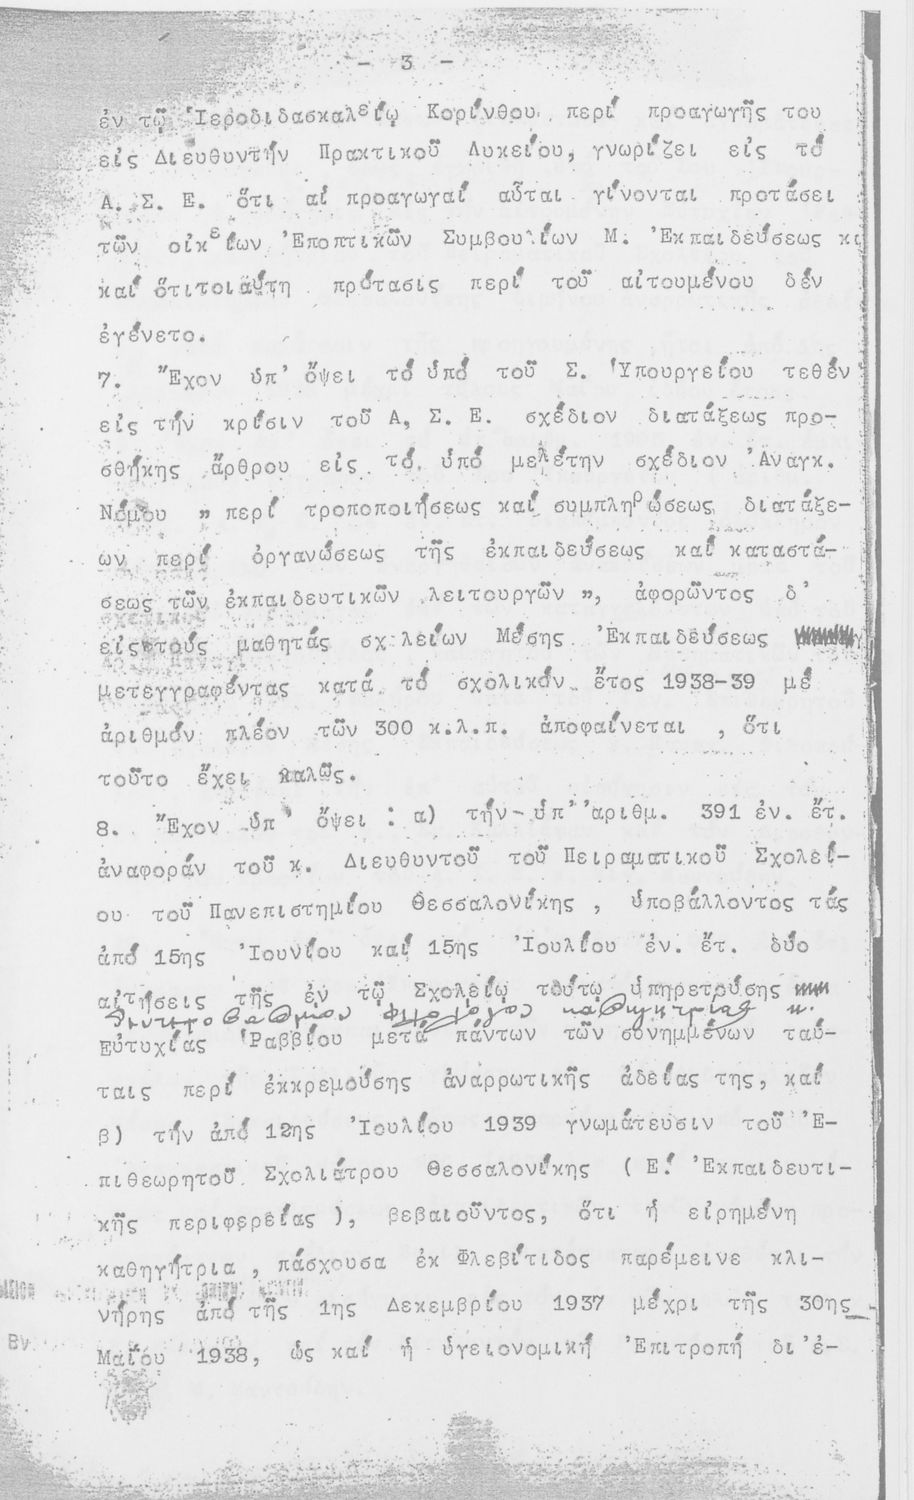 - 3 -
ἐν τῷ Ἱεροδιδασκαλείῳ Κορίνθου περί προαγωγῆς του
εἰς Διευθυντήν Πρακτικοῦ Λυκείου, γνωρίζει εἰς τό
Α. Σ. Ε. ὅτι αἱ προαγωγαί αὗται γίνονται προτάσει
τῶν οἰκείων Ἐποπτικῶν Συμβουλίων Μ. Ἐκπαιδεύσεως κι
καί ὅτιτοιαύτη πρότασις περί τοῦ αἰτουμένου δέν
ἐγένετο.
7. Ἔχον ὑπ' ὄψει τό ὑπό τοῦ Σ. Ὑπουργείου τεθέν
εἰς τήν κρίσιν τοῦ Α, Σ. Ε. σχέδιον διατάξεως προ-
σθήκης ἄρθρου εἰς τό ὑπό μελέτην σχέδιον Ἀναγκ.
Νόμου " περί τροποποιήσεως καί συμπληρώσεως διατάξε-
ων περί ὀργανώσεως τῆς ἐκπαιδεύσεως καί καταστά-
σεως τῶν ἐκπαιδευτικῶν λειτουργῶν ", ἀφορῶντος δ'
εἰς τούς μαθητάς σχολείων Μέσης Ἐκπαιδεύσεως
μετεγγραφέντας κατά τό σχολικόν ἔτος 1938-39 μέ
ἀριθμόν πλέον τῶν 300 κ.λ.π. ἀποφαίνεται , ὅτι
τοῦτο ἔχει καλῶς.
8. Ἔχον ὑπ' ὄψει : α) τήν ὑπ' ἀριθμ. 391 ἐν. ἔτ.
ἀναφοράν τοῦ κ. Διευθυντοῦ τοῦ Πειραματικοῦ Σχολεί-
ου τοῦ Πανεπιστημίου Θεσσαλονίκης , ὑποβάλλοντος τάς
ἀπό 15ης Ἰουνίου καί 15ης Ἰουλίου ἐν. ἔτ. δύο
αἰτήσεις τῆς ἐν τῷ Σχολείῳ τούτῳ ὑπηρετούσης
δευτεροβαθμίου φιλολόγου καθηγητρίας κ.
Εὐτυχίας Ῥαββίου μετά πάντων τῶν συνημμένων ταύ-
ταις περί ἐκκρεμούσης ἀναρρωτικῆς ἀδείας της, καί
β) τήν ἀπό 12ης Ἰουλίου 1939 γνωμάτευσιν τοῦ Ἐ-
πιθεωρητοῦ Σχολιάτρου Θεσσαλονίκης ( Ε! Ἐκπαιδευτι-
κῆς περιφερείας ), βεβαιοῦντος, ὅτι ἡ εἰρημένη
καθηγήτρια , πάσχουσα ἐκ Φλεβίτιδος παρέμεινε κλι-
νήρης ἀπό τῆς 1ης Δεκεμβρίου 1937 μέχρι τῆς 30ης
Μαΐου 1938, ὡς καί ἡ ὑγειονομική Ἐπιτροπή δι' ἐ-